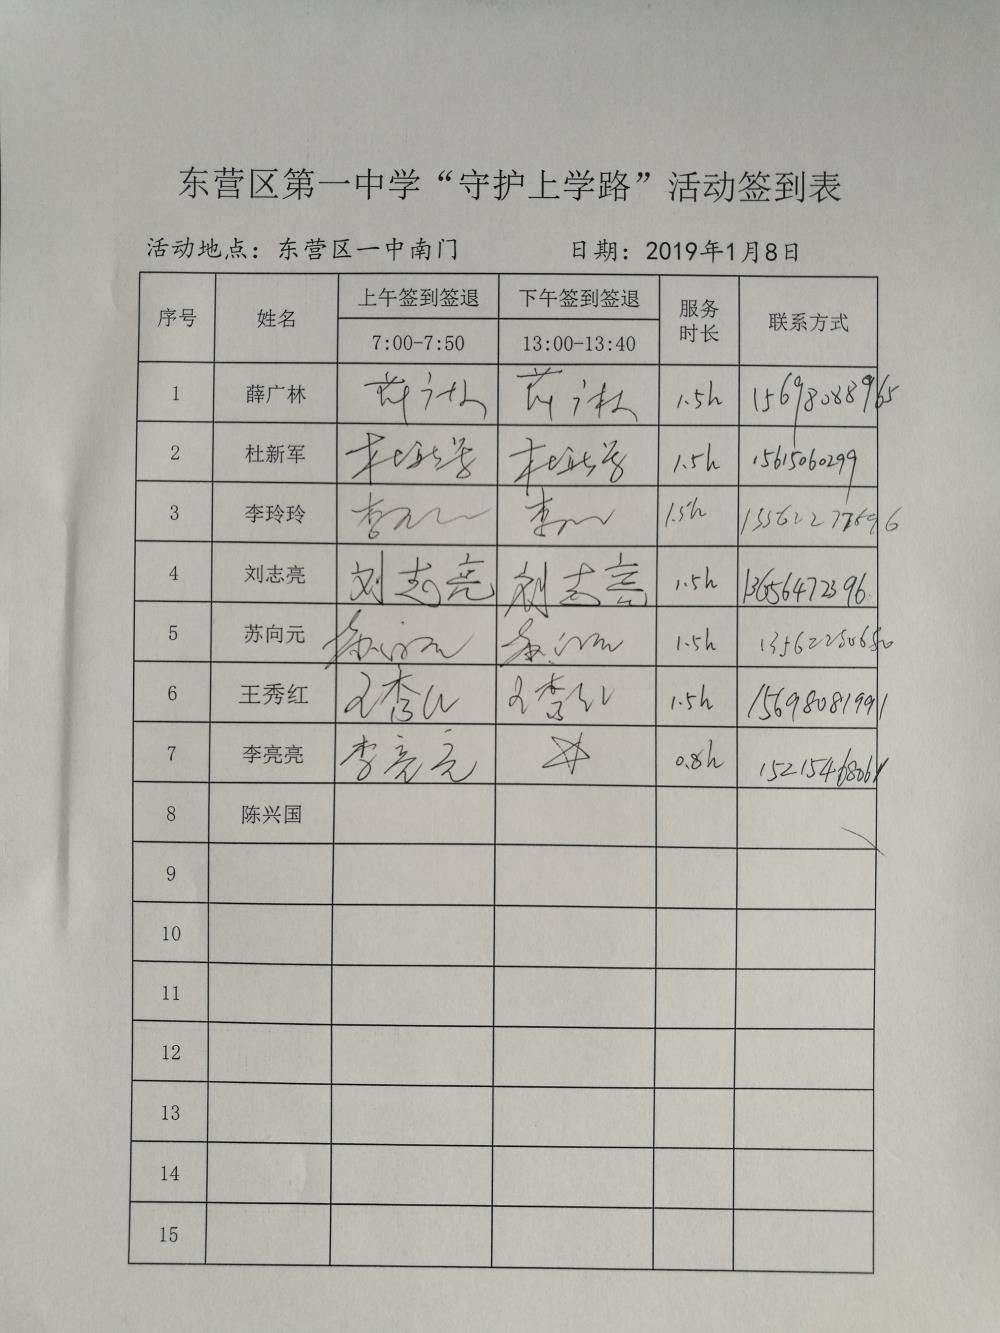 东营区第一中学“守护上学路”活动签到表
活动地点：东营区一中南门 日期：2019年1月8日
序号 姓名 上午签到签退 下午签到签退 服务时长 联系方式
7:00-7:50 13:00-13:40
1 薛广林 薛广林 薛广林 1.5h 15698088965
2 杜新军 杜新军 杜新军 1.5h 15615060299
3 李玲玲 李玲玲 李玲玲 1.5h
4 刘志亮 刘志亮 刘志亮 1.5h 13656472396
5 苏向元 苏向元 苏向元 1.5h 13562250650
6 王秀红 王秀红 王秀红 1.5h 15698081991
7 李亮亮 李亮亮 0.8h
8 陈兴国
9
10
11
12
13
14
15